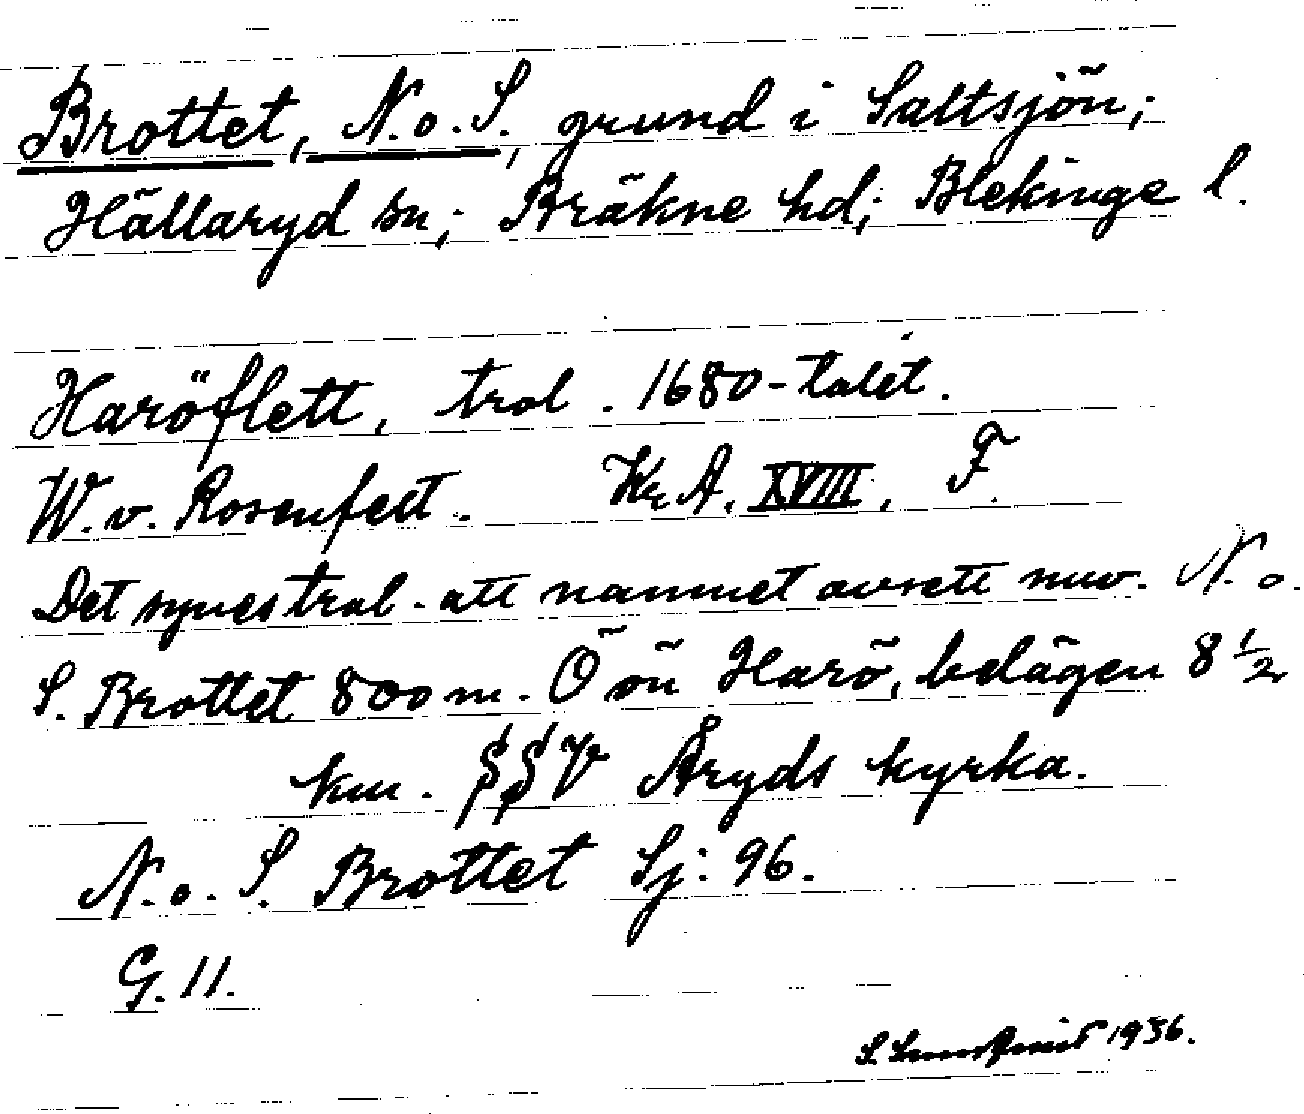 Brottet, N. o. S., grund i Saltsjön;
Hällaryd sn; Bräkne hd; Blekinge l.
Haröflett, trol. 1680-talet.
W. v. Rosenfelt. Kr. A. XVIII, F.
Det synes trol. att namnet avsett nuv. N. o.
S. Brottet 800 m. Ö ön Harö, belägen 8 1/2
km. SSV Åryds kyrka.
N. o. S. Brottet Sj: 96.
G. 11.
S. 1936.